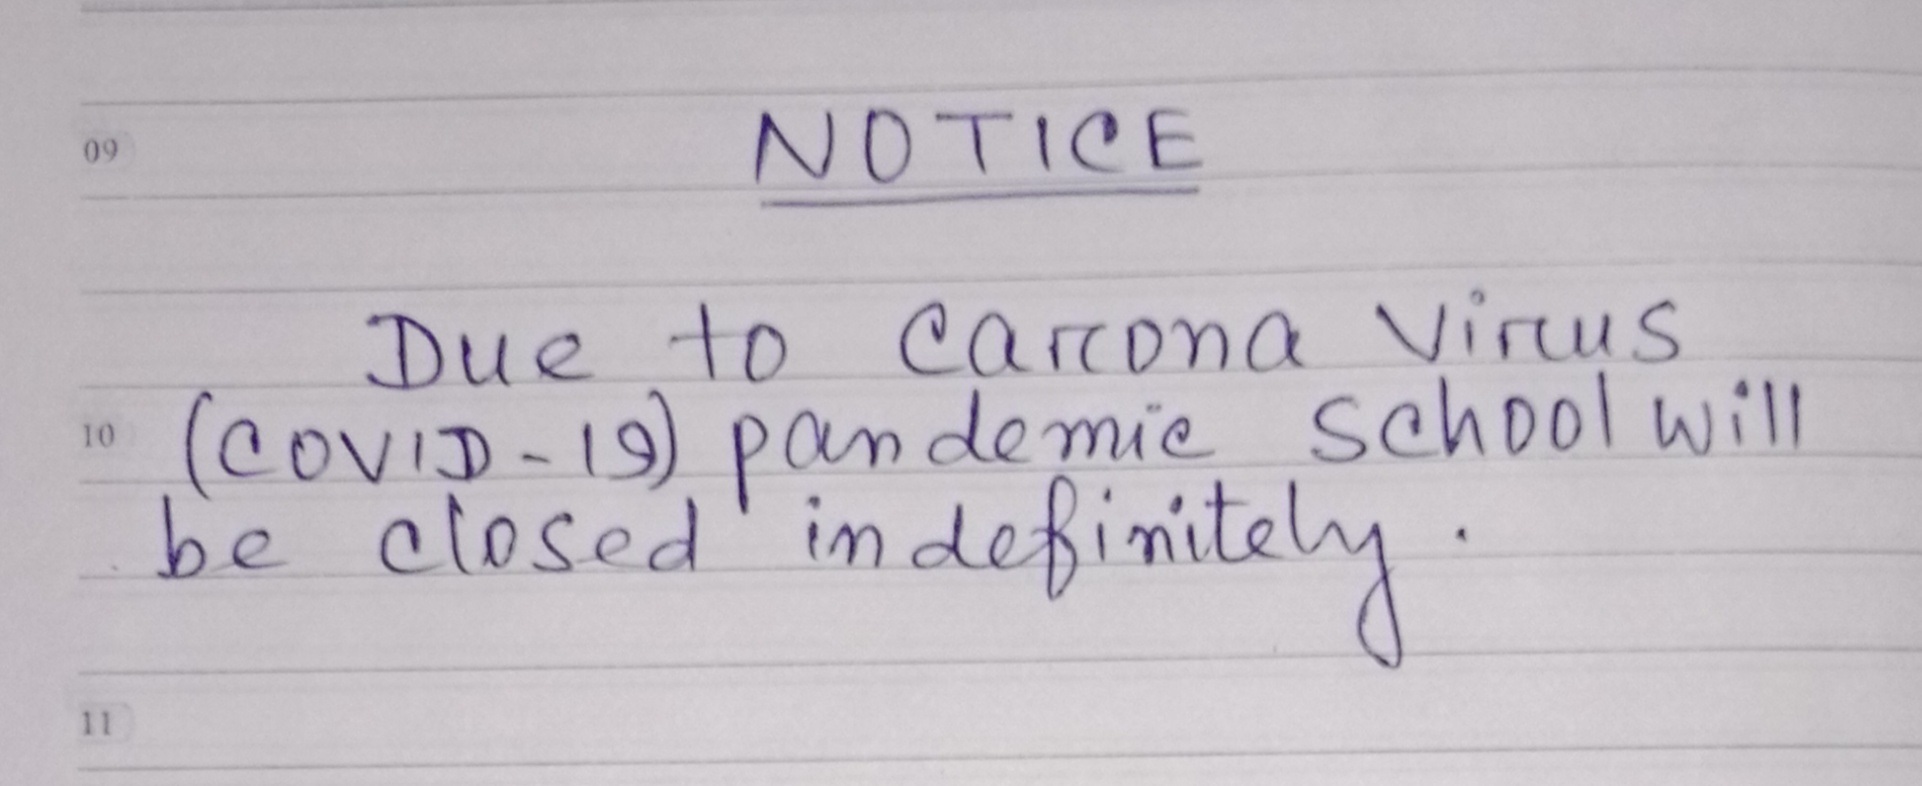 09
NOTICE
Due to Carona Virus
10 (COVID-19) pandemic School will
be closed indefinitely.
11